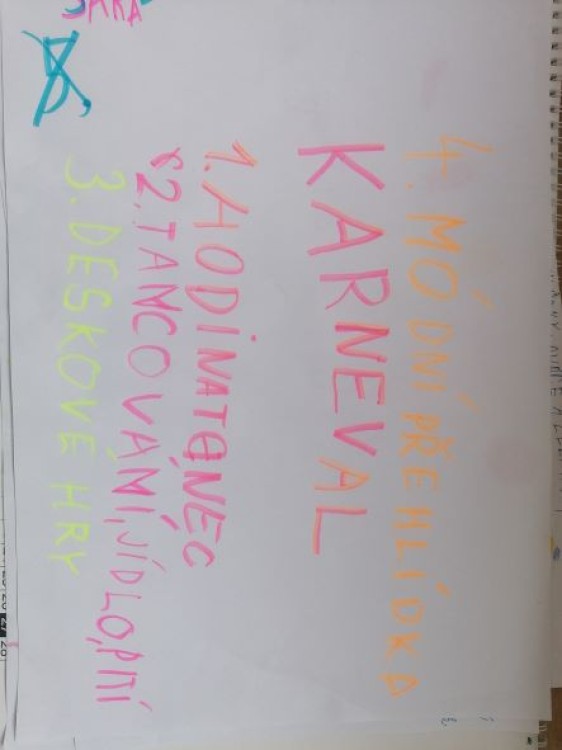 4. MÓDNÍ PŘEHLÍDKA
KARNEVAL
1. HODINA TANEC
2. TANCOVÁNÍ, JÍDLO, PITÍ
3. DESKOVÉ HRY